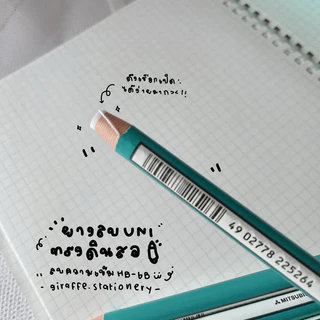 ตัวเชือกเปิด
ได้ง่ายมากกก!!
ยางลบ UNI
ทรงดินสอ
ลบความเข้ม HB-6B
-giraffe.stationery-
49 02778 225264
MITSUBI